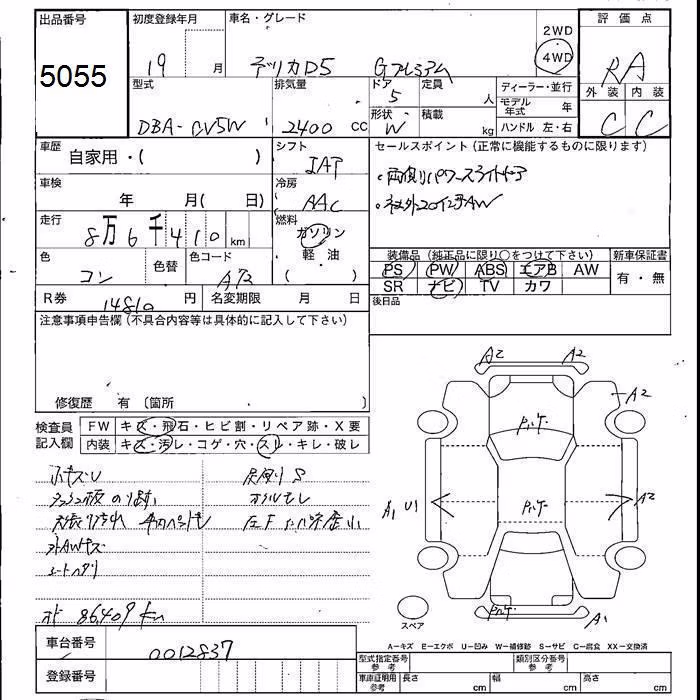 出品番号
5055
初度登録年月
19 月
車名・グレード
デリカD5 Gプレミアム
2WD
4WD
評価点
RA
外装 内装
C C
型式
DBA-CV5W
排気量
2400 cc
ドア
5
形状
W
定員
人
積載
kg
ディーラー・並行
モデル年式 年
ハンドル 左・右
車歴
自家用・( )
シフト
IAT
セールスポイント (正常に機能するものに限ります)
・両側パワースライドドア
・社外20インチAW
車検
年 月( 日)
冷房
AAC
走行
8万6千410 km
燃料
ガソリン
軽・油
( )
色
コン
色替
色コード
A72
装備品 (純正品に限り○をつけて下さい)
PS PW ABS エアB AW
SR ナビ TV カワ
新車保証書
有・無
R券 14810 円
名変期限 月 日
後日品
注意事項申告欄 (不具合内容等は具体的に記入して下さい)
修復歴 有 〔箇所 〕
検査員記入欄
FW キズ・飛石・ヒビ割・リペア跡・X要
内装 キズ・汚レ・コゲ・穴・スレ・キレ・破レ
外AWキズ
シートヘタリ
86,409 km
A2 A2
A2
A1 U1
A2
A1
スペア
A－キズ E－エクボ U－凹み W－補修跡 S－サビ C－腐食 XX－交換済
車台番号
0012837
登録番号
型式指定番号参考
類別区分番号参考
車車証明用参考
長さ cm
幅 cm
高さ cm